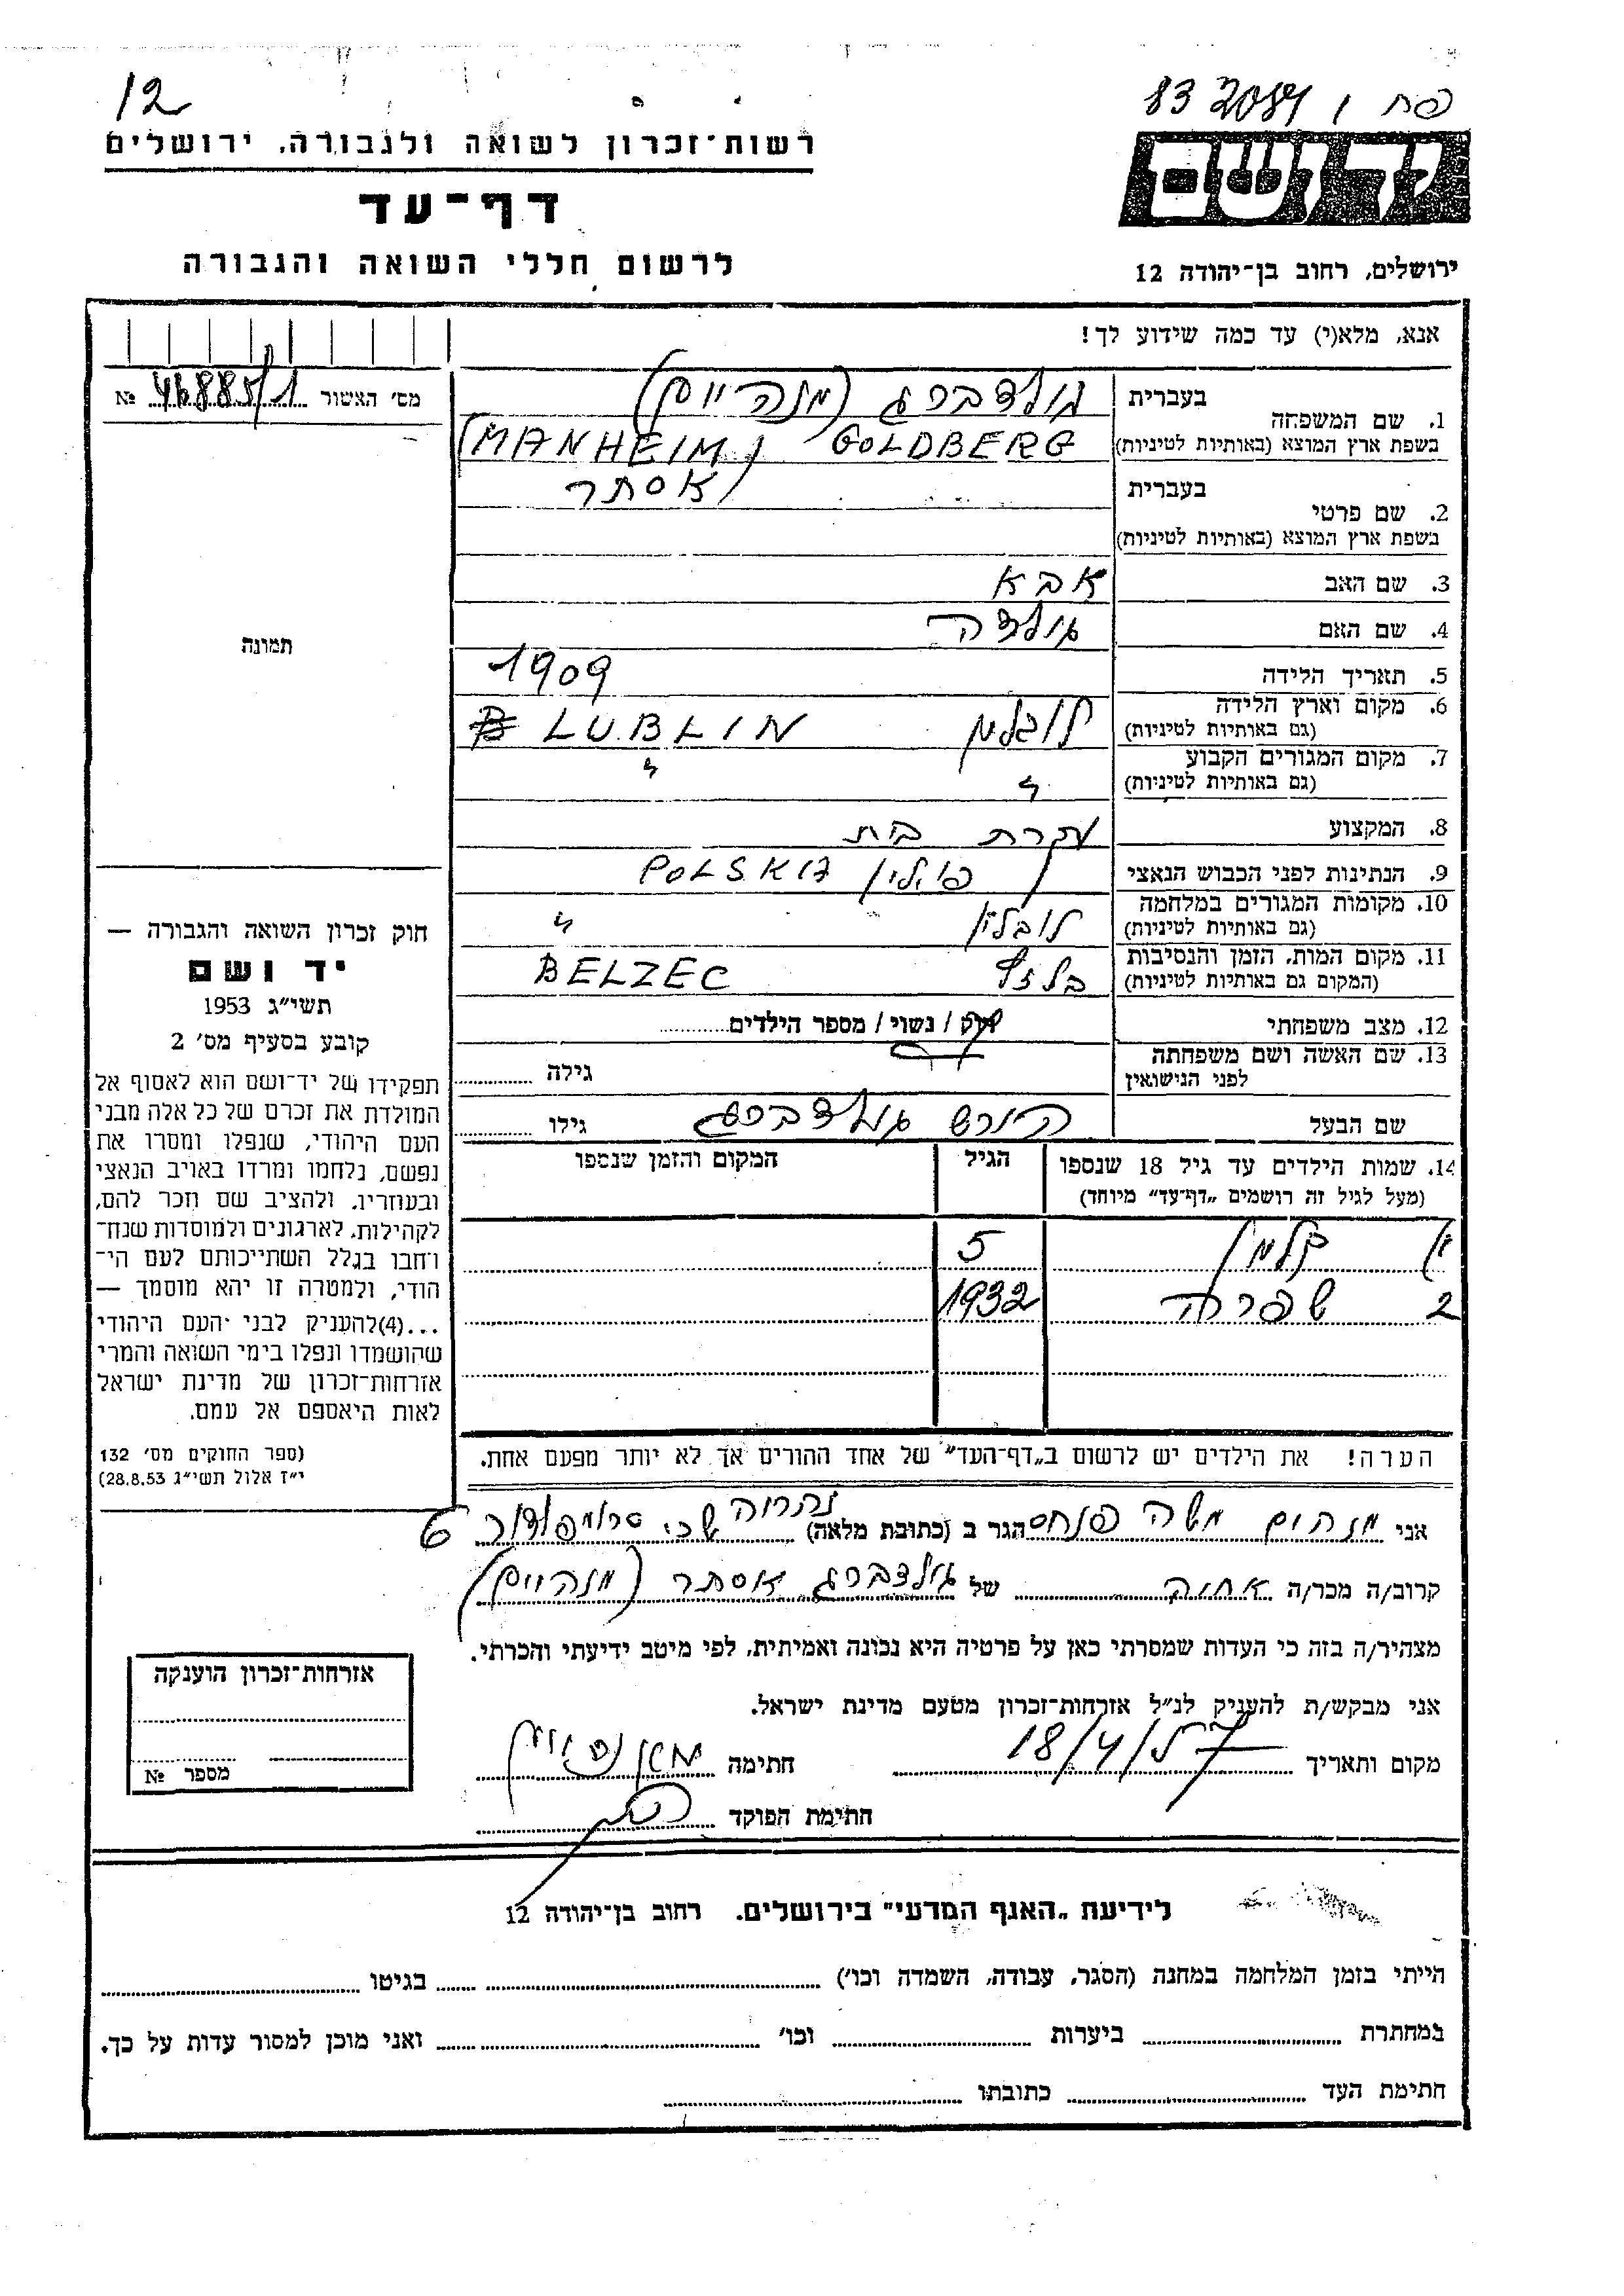 12
פח ו 2084 83
רשות־זכרון לשואה ולגבורה, ירושלים
דף־עד
לרשום חללי השואה והגבורה
יד ושם
ירושלים, רחוב בן־יהודה 12
אנא, מלא(י) עד כמה שידוע לך!
מס׳ האשור № 46885/1
1. שם המשפחה
בעברית גולדברג (מנהיים)
בשפת ארץ המוצא (באותיות לטיניות) GOLDBERG (MANHEIM)
2. שם פרטי
בעברית אסתר
בשפת ארץ המוצא (באותיות לטיניות)
3. שם האב אבא
4. שם האם גולדה
תמונה
5. תאריך הלידה 1909
6. מקום וארץ הלידה לובלין LUBLIN
(גם באותיות לטיניות)
7. מקום המגורים הקבוע
(גם באותיות לטיניות) " "
8. המקצוע עקרת בית
9. הנתינות לפני הכבוש הנאצי פולין POLSKA
10. מקומות המגורים במלחמה
(גם באותיות לטיניות) לובלין "
11. מקום המות, הזמן והנסיבות
(המקום גם באותיות לטיניות) בלזץ BELZEC
12. מצב משפחתי רוק / נשוי / מספר הילדים
13. שם האשה ושם משפחתה
לפני הנישואין גילה
שם הבעל הירש גולדברג גילו
14. שמות הילדים עד גיל 18 שנספו הגיל המקום והזמן שנספו
(מעל לגיל זה רושמים „דף־עד” מיוחד)
1 קלמן 5
2 שפרה 1932
הערה! את הילדים יש לרשום ב„דף־העד” של אחד ההורים אך לא יותר מפעם אחת.
חוק זכרון השואה והגבורה —
יד ושם
תשי״ג 1953
קובע בסעיף מס׳ 2
תפקידו של יד־ושם הוא לאסוף אל
המולדת את זכרם של כל אלה מבני
העם היהודי, שנפלו ומסרו את
נפשם, נלחמו ומרדו באויב הנאצי
ובעוזריו, ולהציב שם וזכר להם,
לקהילות, לארגונים ולמוסדות שנח־
רבו בגלל השתייכותם לעם הי־
הודי, ולמטרה זו יהא מוסמך —
...(4)להעניק לבני העם היהודי
שהושמדו ונפלו בימי השואה והמרי
אזרחות־זכרון של מדינת ישראל
לאות היאספם אל עמם.
(ספר החוקים מס׳ 132
י״ז אלול תשי״ג 28.8.53)
אני מנהים משה פנחס הגר ב (כתובת מלאה) נהריה שכ. טרומפלדור 6
קרוב/ה מכר/ה אחיה של גולדברג אסתר (מנהיים)
מצהיר/ה בזה כי העדות שמסרתי כאן על פרטיה היא נכונה ואמיתית, לפי מיטב ידיעתי והכרתי.
אני מבקש/ת להעניק לנ״ל אזרחות־זכרון מטעם מדינת ישראל.
מקום ותאריך 18/4/57 חתימה
חתימת הפוקד
אזרחות־זכרון הוענקה
מספר №
לידיעת „האגף המדעי” בירושלים. רחוב בן־יהודה 12
הייתי בזמן המלחמה במחנה (הסגר, עבודה, השמדה וכו׳) בגיטו
במחתרת ביערות וכו׳ ואני מוכן למסור עדות על כך.
חתימת העד כתובתו